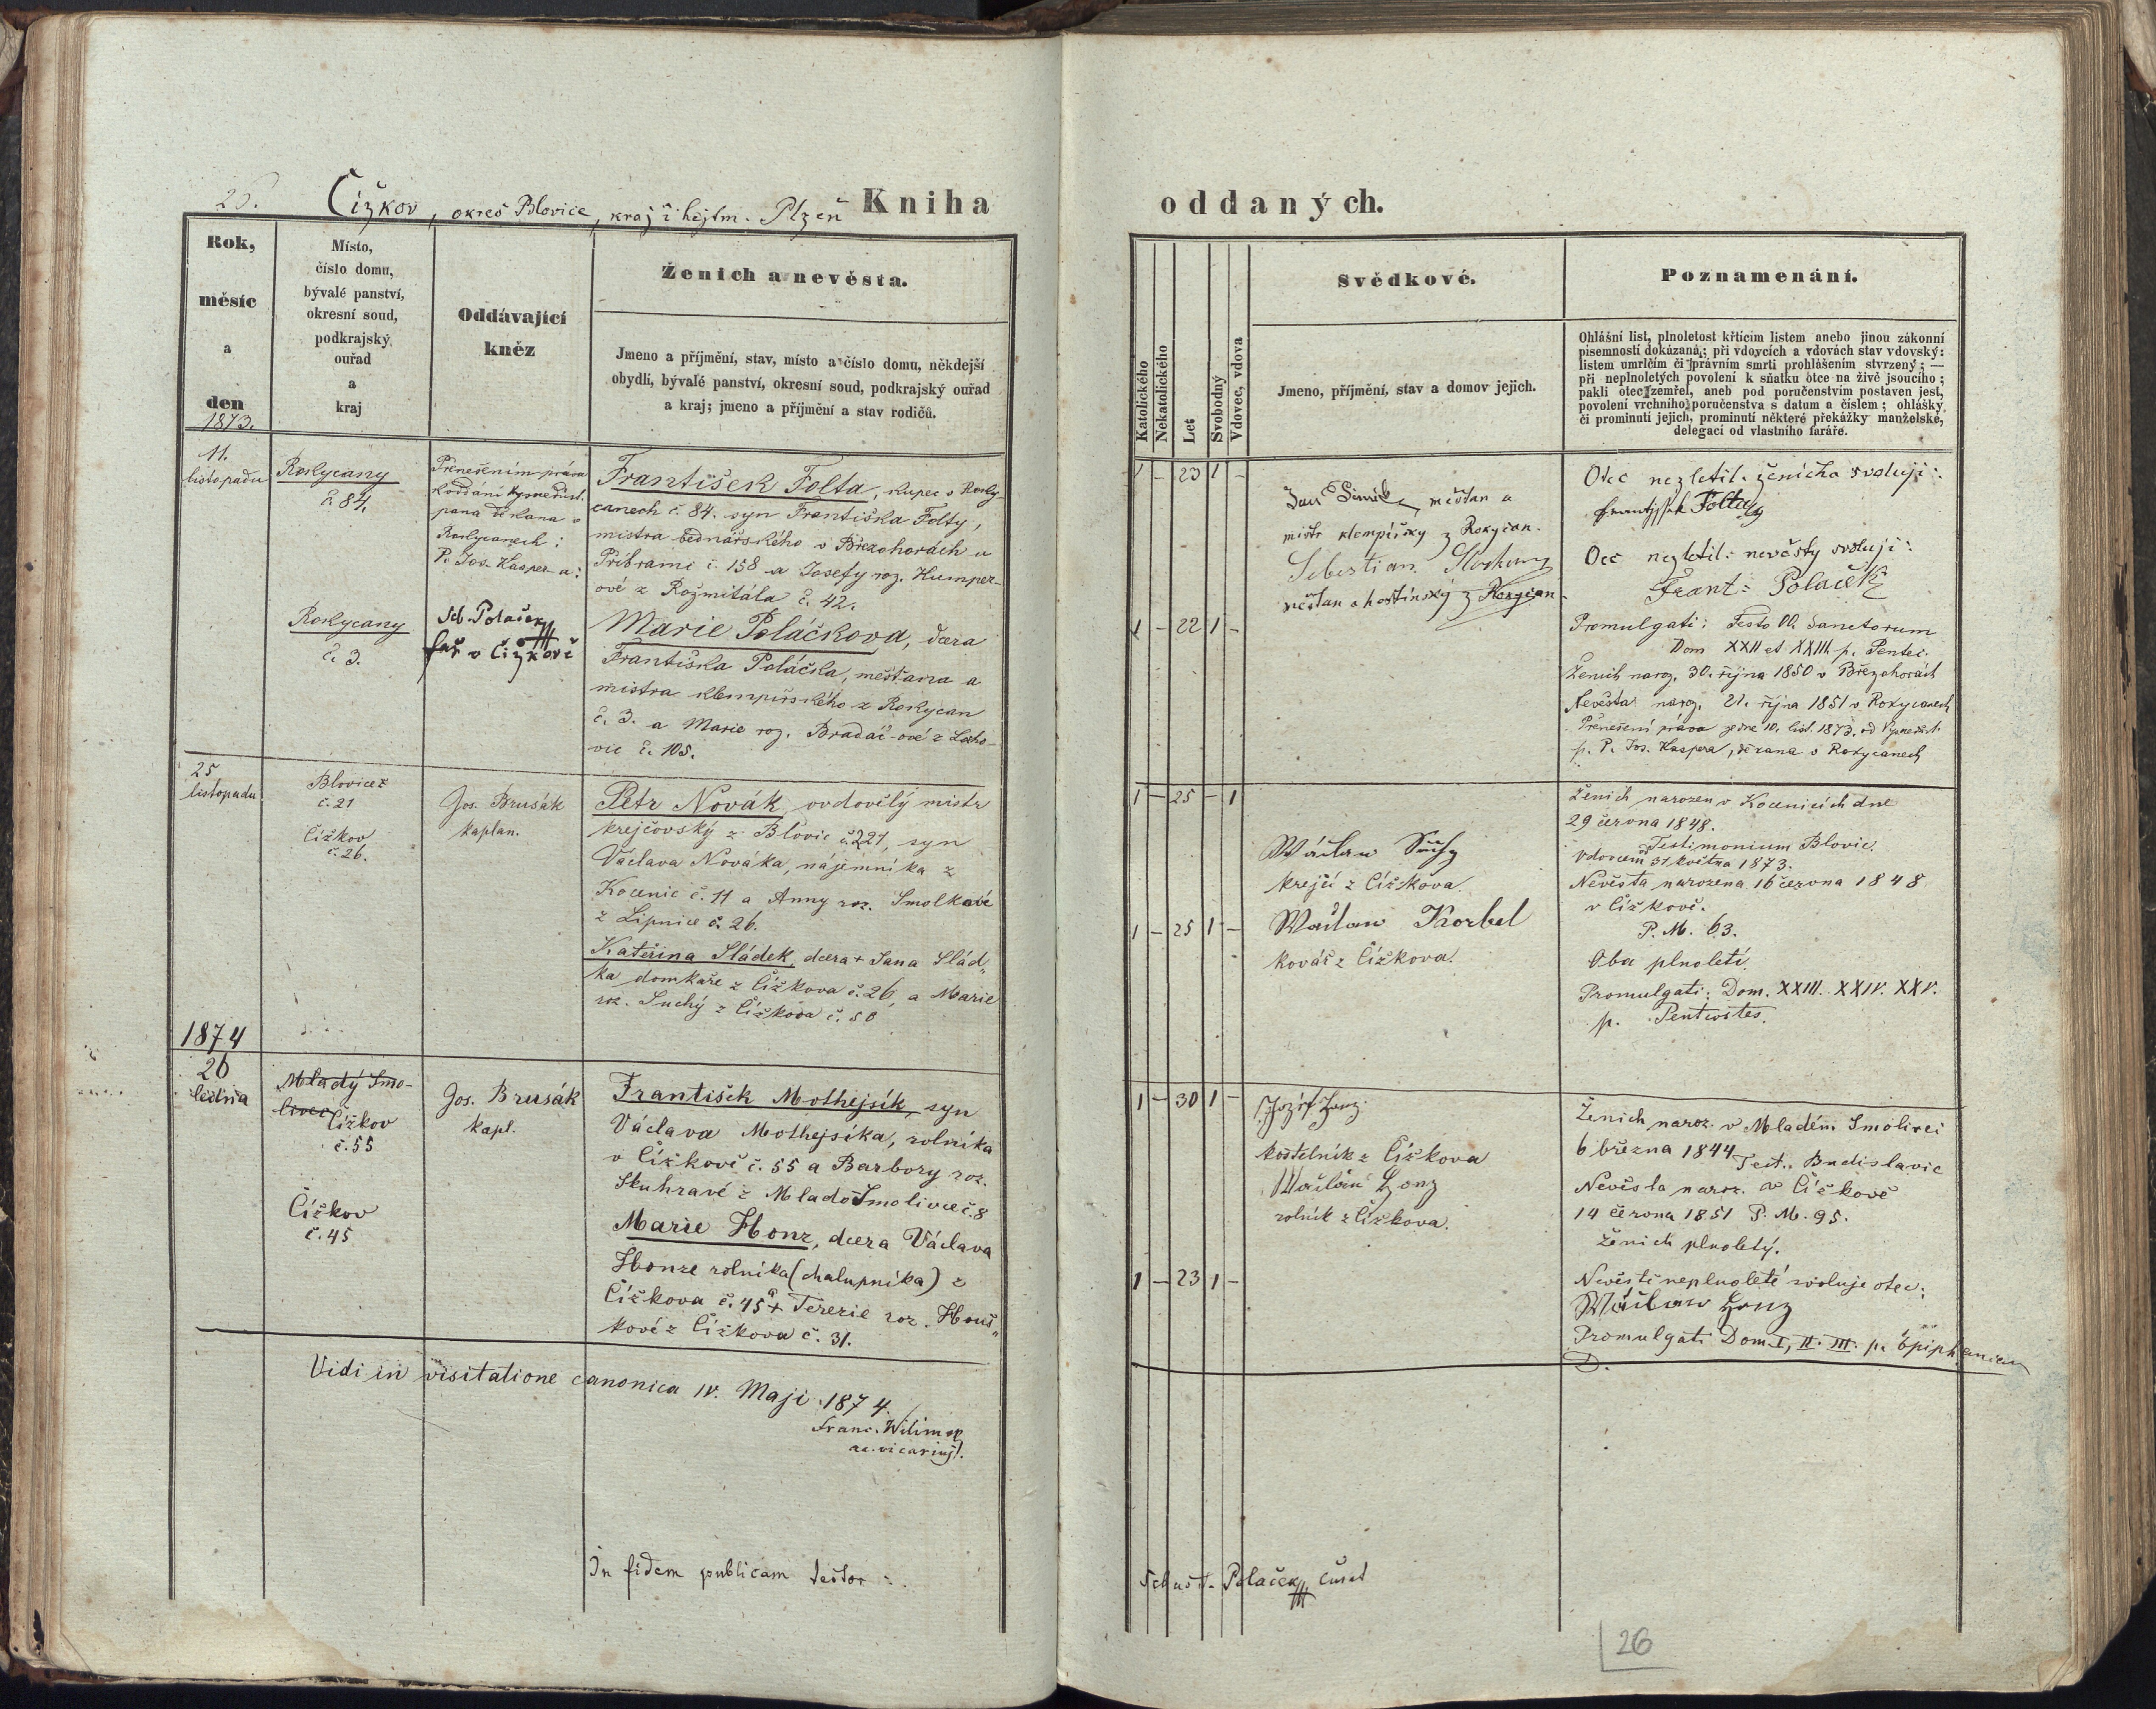 26.
Čížkov, okres Blovice, kraj i hejtm. Plzeň
Kniha
Rok,
měsíc
a
den
1873.
Místo,
číslo domu,
bývalé panství,
okresní soud,
podkrajský
ouřad
a
kraj
Oddávající
kněz
Ženich a nevěsta.
Jmeno a příjmění, stav, místo a číslo domu, někdejší
obydlí, bývalé panství, okresní soud, podkrajský ouřad
a kraj; jmeno a příjmění a stav rodičů.
11.
listopadu
Rokycany
č. 84.
Přenešením práva
koddání
pana děkana v
Rokycanech:
P. Jos. Kasper-a:
František Folta, kupec v Roky-
canech č. 84. syn Františka Folty,
mistra bednářského v Březohorách u
Příbrami č. 158 a Josefy roz. Kumper-
ové z Rožmitála č. 42.
Rokycany
č. 3.
Seb. Polaček
far v Čížkově
Marie Poláčkova, dcera
Františka Poláčka, měšťana a
mistra klempířského z Rokycan
č. 3. a Marie roz. Bradáč-ové z
vic č. 105.
25
listopadu
Blovice
č. 21
Čížkov
č. 26.
Jos. Brusák
kaplan.
Petr Novák, ovdovělý mistr
krejčovský z Blovic č. 221, syn
Václava Nováka, nájemníka z
Kocenic č. 11 a Anny roz. Smolkové
z Lipnice č. 26.
Kateřina Sládek, dcera + Jana Slád„
ka domkaře z Čížkova č. 26, a Marie
roz. Suchý z Čížkova č. 50
1874
26
ledna
Mladý Smo-
livec Čížkov
č. 55
Čížkov
č. 45
Jos. Brusák
kapl.
František Mothejsík, syn
Václava Mothejsíka, rolníka
v Čížkově č. 55 a Barbory roz.
Skuhravé z MladoSmolivce č. 8
Marie Honz, dcera Václava
Honze rolníka (chalupníka) z
Čížkova č. 45 a + Terezie roz. Houš„
kové z Čížkova č. 31.
Vidi in visitatione canonica IV. Maji 1874.
Franc. Wilim
vicarius.
In fidem publicam testor:
oddaných.
Katolického
Nekatolického
Let
Svobodný
Vdovec, vdova
Svědkové.
Jmeno, příjmění, stav a domov jejich.
Poznamenání.
Ohlášní list, plnoletost křticím listem anebo jinou zákonní
písemností dokázaná; při vdovcích a vdovách stav vdovský:
listem umrlčím či právním smrti prohlášením stvrzený; —
při neplnoletých povolení k sňatku otce na živě jsoucího;
pakli otec zemřel, aneb pod poručenstvím postaven jest,
povolení vrchního poručenstva s datum a číslem; ohlášky
či prominutí jejich, prominutí některé překážky manželské,
delegací od vlastního faráře.
1 – 23 1 –
Jan měšťan a
mistr klempířský z Rokycan.
Sebestian
měšťan a hostinský z Rokycan
Otec nezletil. ženicha svoluji:
Folta
Otec nezletil: nevěsty svoluji:
Frant: Polaček
1 – 22 1 –
Promulgati: Festo OO. Sanctorum
Dom XXII et XXIII. p. Pentec.
Ženich naroz. 30. října 1850 v Březohorách
Nevěsta naroz. 21. října 1851 v Rokycanech
Přenešení práva ze dne 10. list. 1873. od
p. P. Jos. Kaspera, děkana v Rokycanech
1 – 25 – 1
Wáclaw Suchy
krejčí z Čížkova.
Ženich narozen v Kocenicích dne
29 června 1848.
Testimonium Blovic.
Vdovcem 31 května 1873.
Nevěsta narozena 16 června 1848
v Čížkově.
P. M. 63.
1 – 25 1 –
Waclaw Korbel
kovář z Čížkova.
Oba plnoletí.
Promulgati: Dom. XXIII. XXIV. XXV.
p. Pentecostes.
1 – 30 1 –
Jozef Honz
kostelník z Čížkova
Wáclaw Honz
rolník z Čížkova.
Ženich naroz. v Mladém Smolivci
6 března 1844 Test. Budislavic
Nevěsta naroz. v Čížkově
14 června 1851 P. M. 95.
Ženich plnoletý.
1 – 23 1 –
Nevěstě neplnoleté svoluje otec:
Wáclaw Honz
Promulgati Dom. I, II. III. p. Epiphaniam
D.
Sebast. Polaček, curat
26